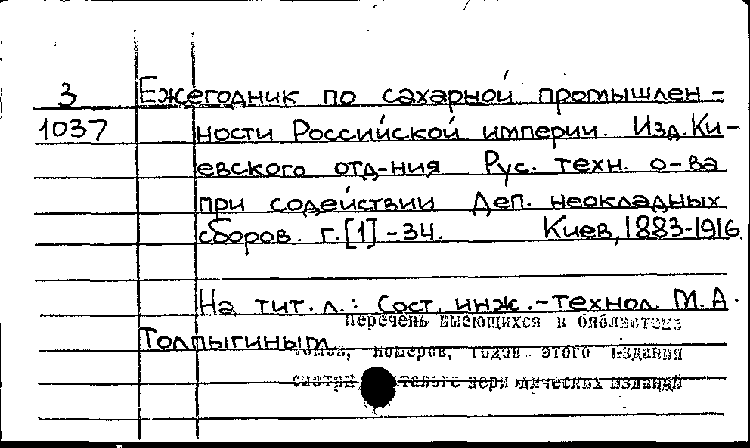 3 Ежегодник по сахарной промышлен-
1037 ности Российской империи. Изд. Ки-
евского отд-ния Рус. техн. о-ва
при содействии Деп. неокладных
сборов. г. [1]-34. Киев, 1883-1916.
На тит. л.: Сост. инж.-технол. М.А.
Перечень имеющихся в библиотеке
Толпыгиным
томов, номеров, годов этого издания
смотри периодических изданий